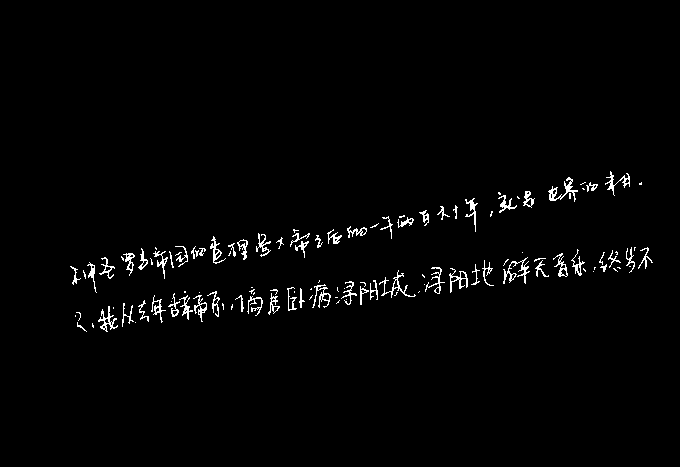 神圣罗马帝国的查理曼大帝之后的一千两百六十年，就是世界的末日。
2、我从去年辞帝京，谪居卧病浔阳城。浔阳地僻无音乐，终岁不